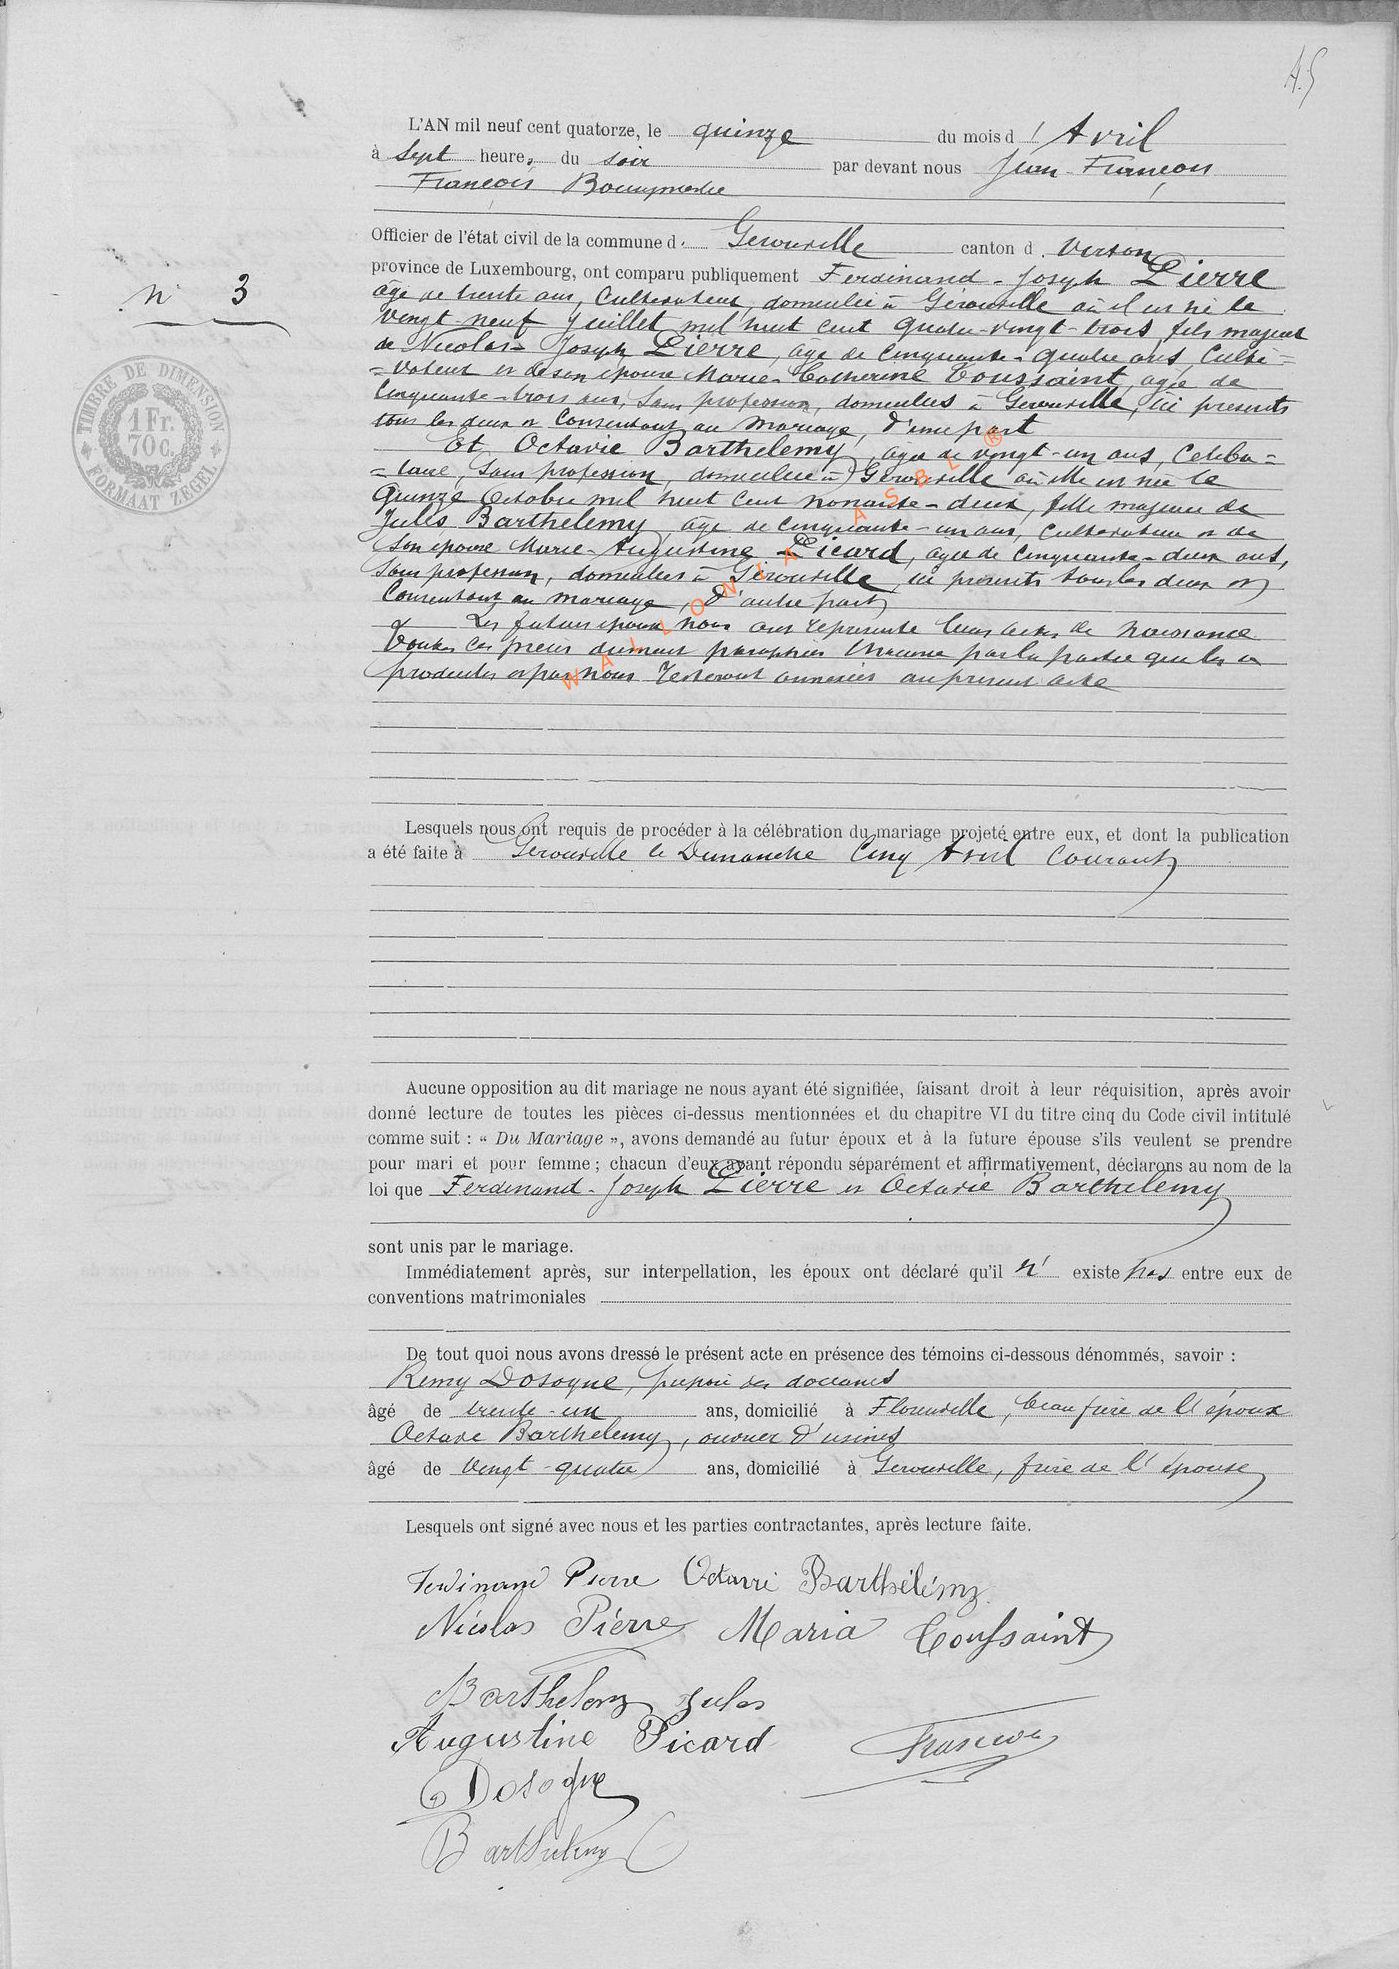 L'AN mil neuf cent quatorze, le quinze du mois d' Avril
à Sept heures du soir par devant nous Jean-François
François Bourgmestre
Officier de l'état civil de la commune de Gérouville canton d. Virton
province de Luxembourg, ont comparu publiquement Ferdinand-Joseph Pierre
N° 3
âgé de trente ans, Cultivateur, domicilié à Gérouville où il est né le
vingt-neuf Juillet mil huit cent quatre-vingt-trois, fils majeur
de Nicolas-Joseph Pierre, âgé de Cinquante-quatre ans, Culti=
=vateur et de son épouse Marie-Catherine Toussaint, agée de
Cinquante-trois ans, Sans profession, domiciliés à Gérouville, ici présents
tous les deux et Consentant au Mariage, D'une part
TIMBRE DE DIMENSION
1 Fr.
70 c.
FORMAAT ZEGEL
Et Octavie Barthelemy, agée de vingt-un ans, Céliba=
=taire, Sans profession, domiciliée à Gérouville où elle est née le
Quinze Octobre mil huit cent nonante-deux, fille majeure de
Jules Barthelemy, âgé de Cinquante-un ans, Cultivateur et de
Son épouse Marie-Augustine Picard, agée de Cinquante-deux ans,
Sans profession, domiciliés à Gérouville, ici présents tous les deux et
Consentant au mariage, D'autre part
Les futurs époux nous ont représenté leurs actes de naissance
Toutes ces pièces dûment paraphées Chacune par la partie qui les a
produites et par nous resteront annexées au présent acte
WALLONIA ASBL ®
Lesquels nous ont requis de procéder à la célébration du mariage projeté entre eux, et dont la publication
a été faite à Gérouville le Dimanche Cinq Avril Courant
Aucune opposition au dit mariage ne nous ayant été signifiée, faisant droit à leur réquisition, après avoir
donné lecture de toutes les pièces ci-dessus mentionnées et du chapitre VI du titre cinq du Code civil intitulé
comme suit : « Du Mariage », avons demandé au futur époux et à la future épouse s'ils veulent se prendre
pour mari et pour femme ; chacun d'eux ayant répondu séparément et affirmativement, déclarons au nom de la
loi que Ferdinand-Joseph Pierre et Octavie Barthelemy
sont unis par le mariage.
Immédiatement après, sur interpellation, les époux ont déclaré qu'il n' existe pas entre eux de
conventions matrimoniales
De tout quoi nous avons dressé le présent acte en présence des témoins ci-dessous dénommés, savoir :
Remy Dosogne, préposé des douanes
âgé de trente-un ans, domicilié à Florenville, beau frère de l'époux
Octave Barthelemy, ouvrier d'usines
âgé de vingt-quatre ans, domicilié à Gérouville, frère de l'épouse
Lesquels ont signé avec nous et les parties contractantes, après lecture faite.
Ferdinand Pierre Octavie Barthélémy
Nicolas Pierre Maria Toussaint
Barthelemy Jules
Augustine Picard
Dosogne
Barthelemy